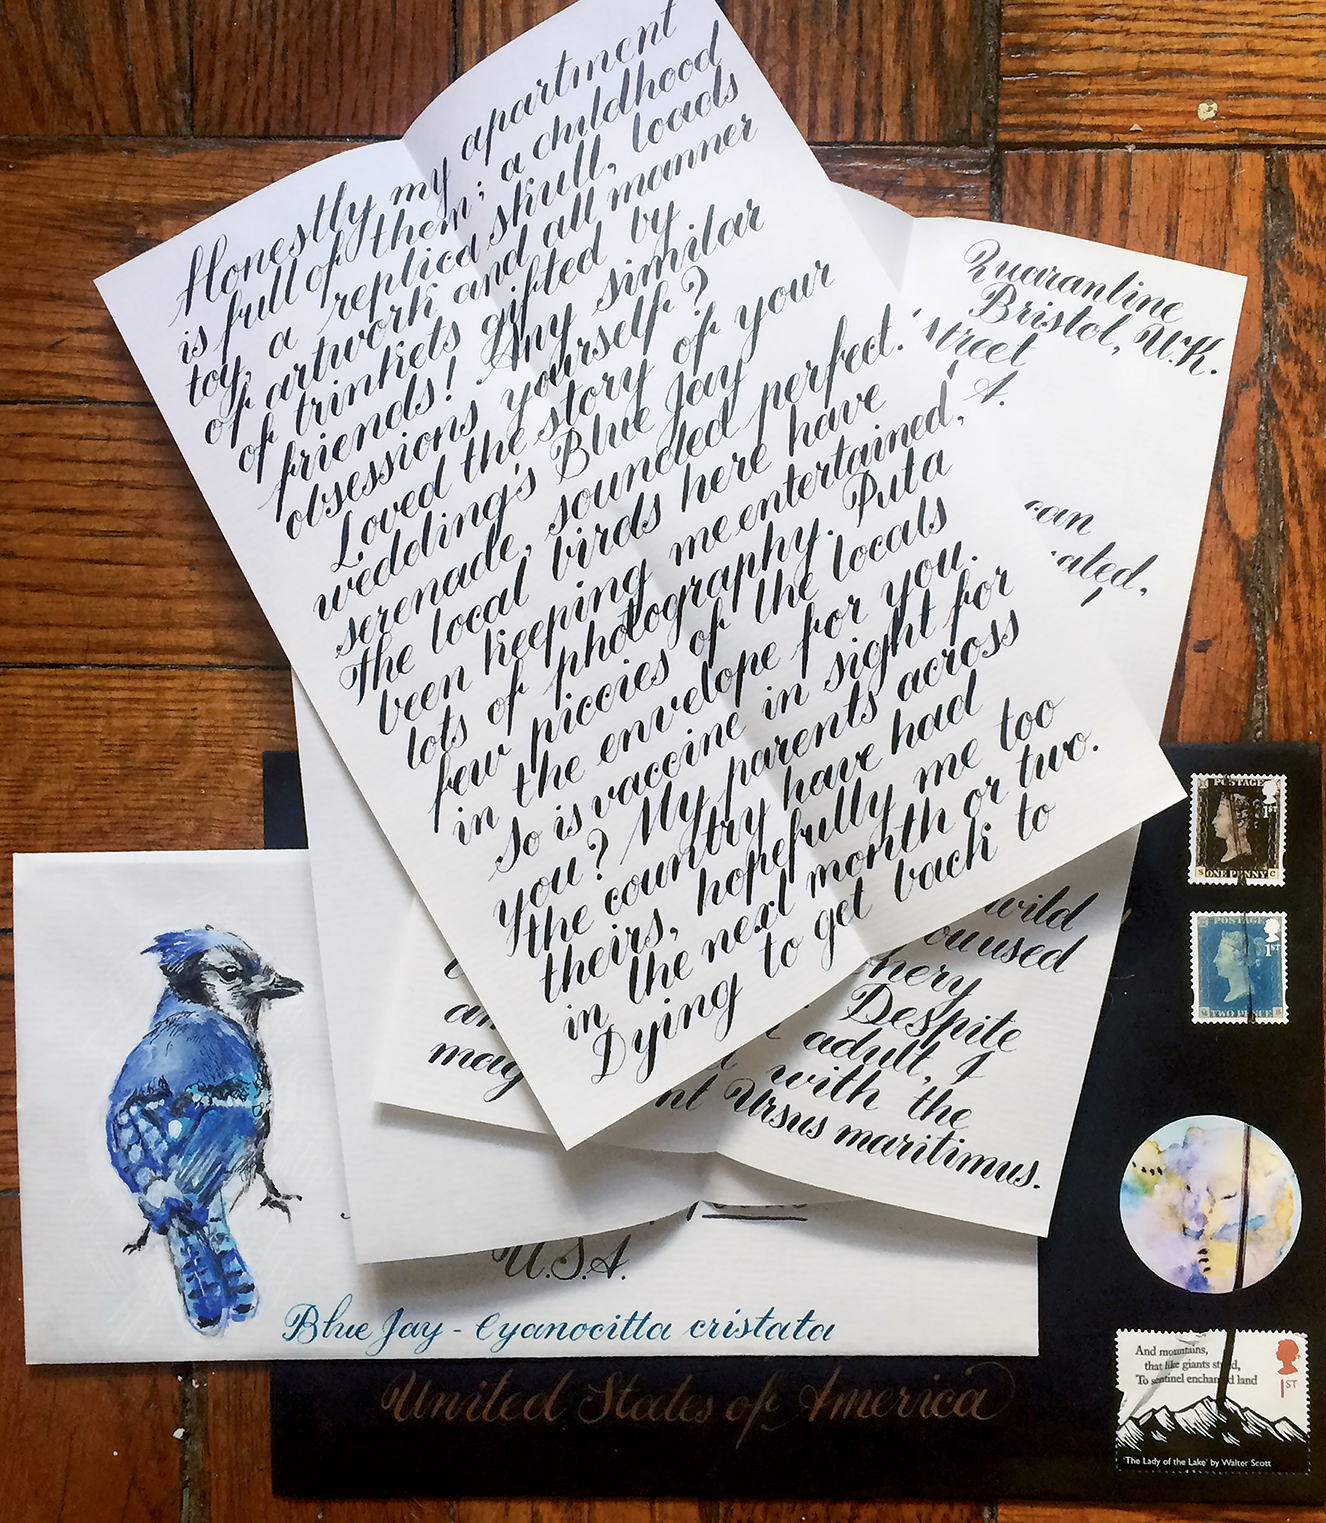 Honestly my apartment
is full of them; a childhood
toy, a replica skull, loads
of artwork and all manner
of trinkets gifted by
friends! Any similar
obsessions yourself?
Loved the story of your
wedding's Blue Jay
serenade, sounded perfect.
The local birds here have
been keeping me entertained,
lots of photography. Put a
few piccies of the locals
in the envelope for you.
So is vaccine in sight for
you? My parents across
the country have had
theirs, hopefully me too
in the next month or two.
Dying to get back to
Quarantine
Bristol, U.K.
street
A.
can
ated,
wild
ou used
hery
Despite
adult, I
with the
nt Ursus maritimus.
an
mag
U.S.A.
Blue Jay - Cyanocitta cristata
United States of America
POSTAGE
1ST
S ONE PENNY C
POSTAGE
1ST
TWO PENCE
And mountains,
that like giants stand,
To sentinel enchanted land
1ST
'The Lady of the Lake' by Walter Scott